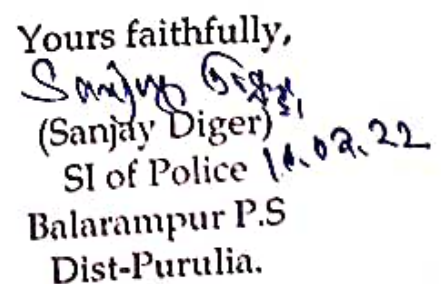 Yours faithfully,
Sanjay Diger
SI
(Sanjay Diger)
SI of Police
Balarampur P.S
Dist-Purulia.